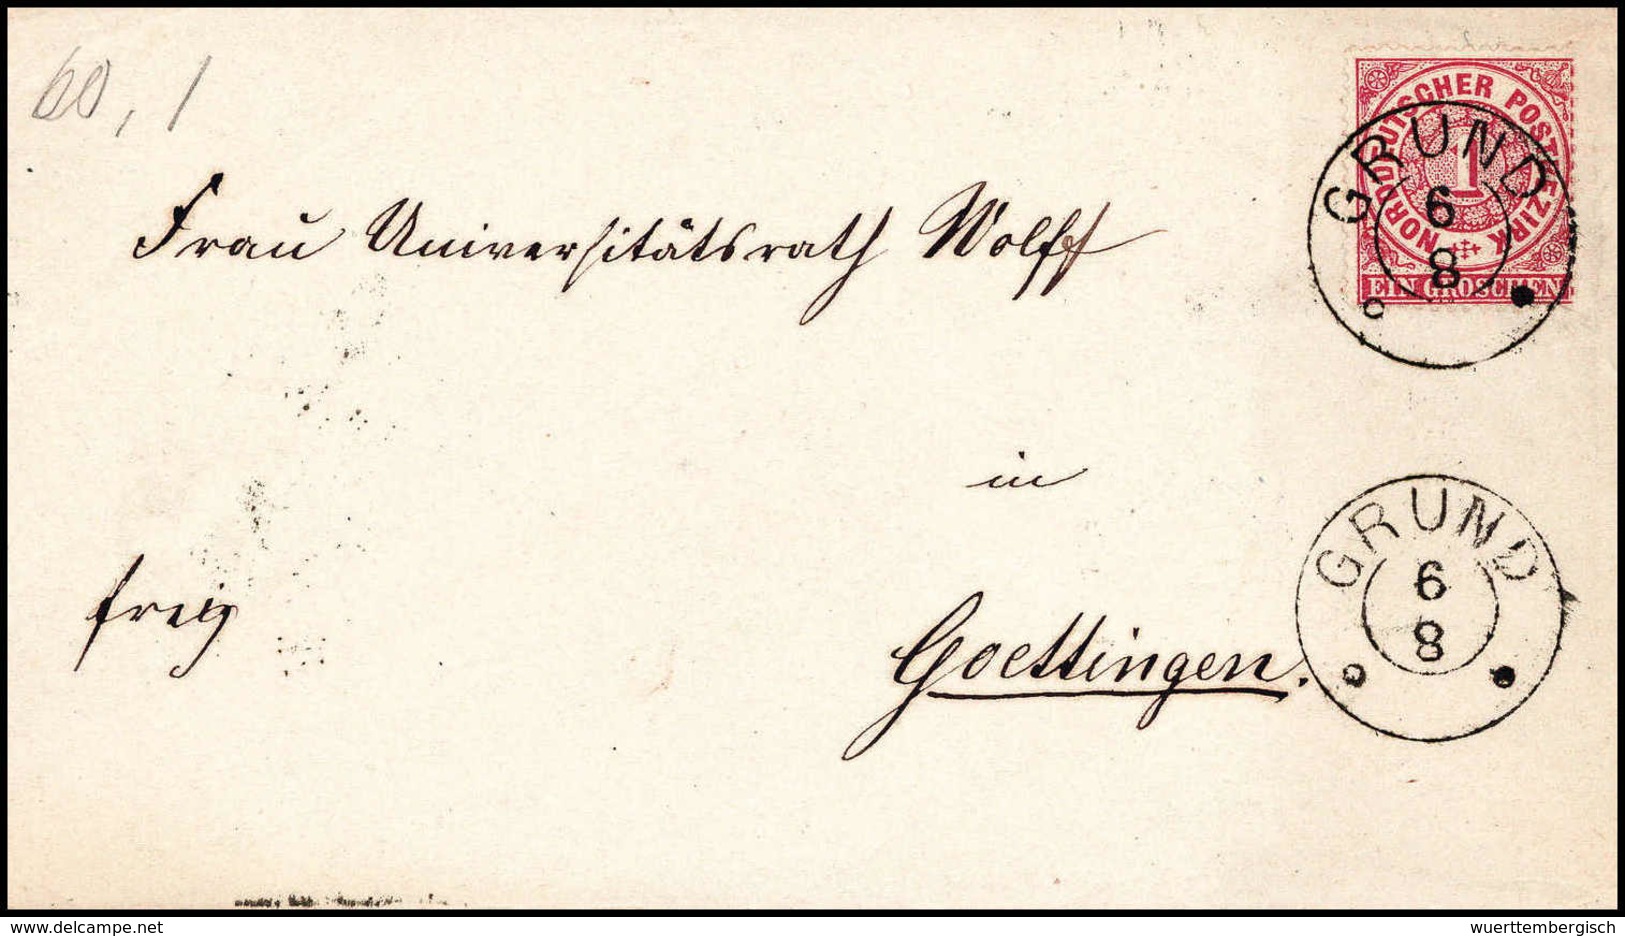 60, 1
NORDDEUTSCHER POSTBEZIRK
1
EIN GROSCHEN
GRUND
6
8
Frau Universitätsrath Wolff
in
frei
Goettingen.
GRUND
6
8
www.delcampe.net
wuerttembergisch